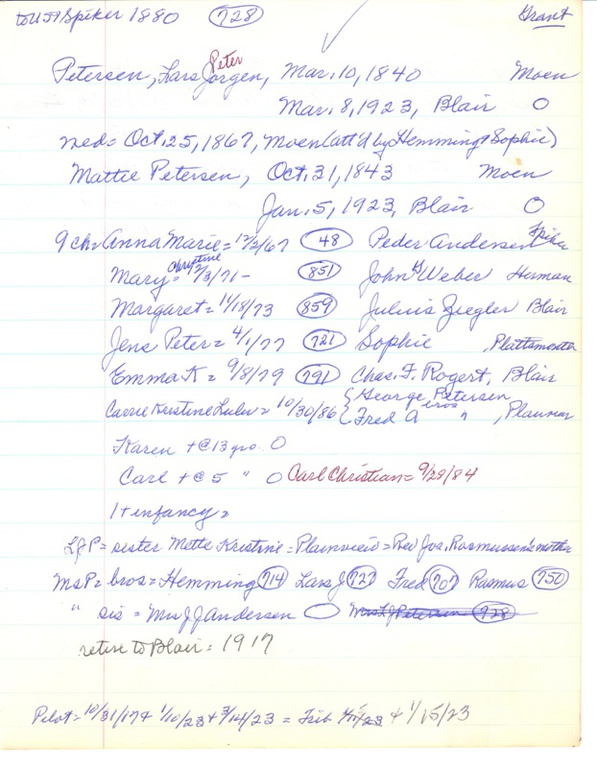 to USA Spiker 1880 728 Grant
Petersen, Lars Jorgen, Peter Mar. 10, 1840 Moen
Mar. 8, 1923, Blair O
med = Oct. 25, 1867, Moen (att'd by Hemming & Sophie)
Mattie Petersen, Oct. 31, 1843 Moen
Jan. 5, 1923, Blair O
9 ch = Anna Marie = 12/2/67 48 Peder Andersen Spiker
Mary Christine = 2/3/71 - 851 John H Weber Herman
Margaret = 11/18/73 859 Julius Ziegler Blair
Jens Peter = 4/1/77 721 Sophie , Plattsmouth
Emma K = 9/8/79 791 Chas. F. Rogert, Blair
Carrie Kristine = 10/30/86 { George Petersen
{ Fred A bros " , Plainview
Karen + @ 13 yrs. O
Carl + @ 5 " O Carl Christian = 9/29/84
1 + infancy =
LJP = sister Mette Kristine = Plainview = Rev Jos. Rasmussen's mother
MsP = bros = Hemming 714 Lars J 727 Fred 707 Rasmus 750
" sis = Mrs J J Andersen O Mrs L J Petersen 728
retire to Blair = 1917
Pilot = 10/31/17 & 1/10/23 & 3/14/23 = Trib & 1/15/23